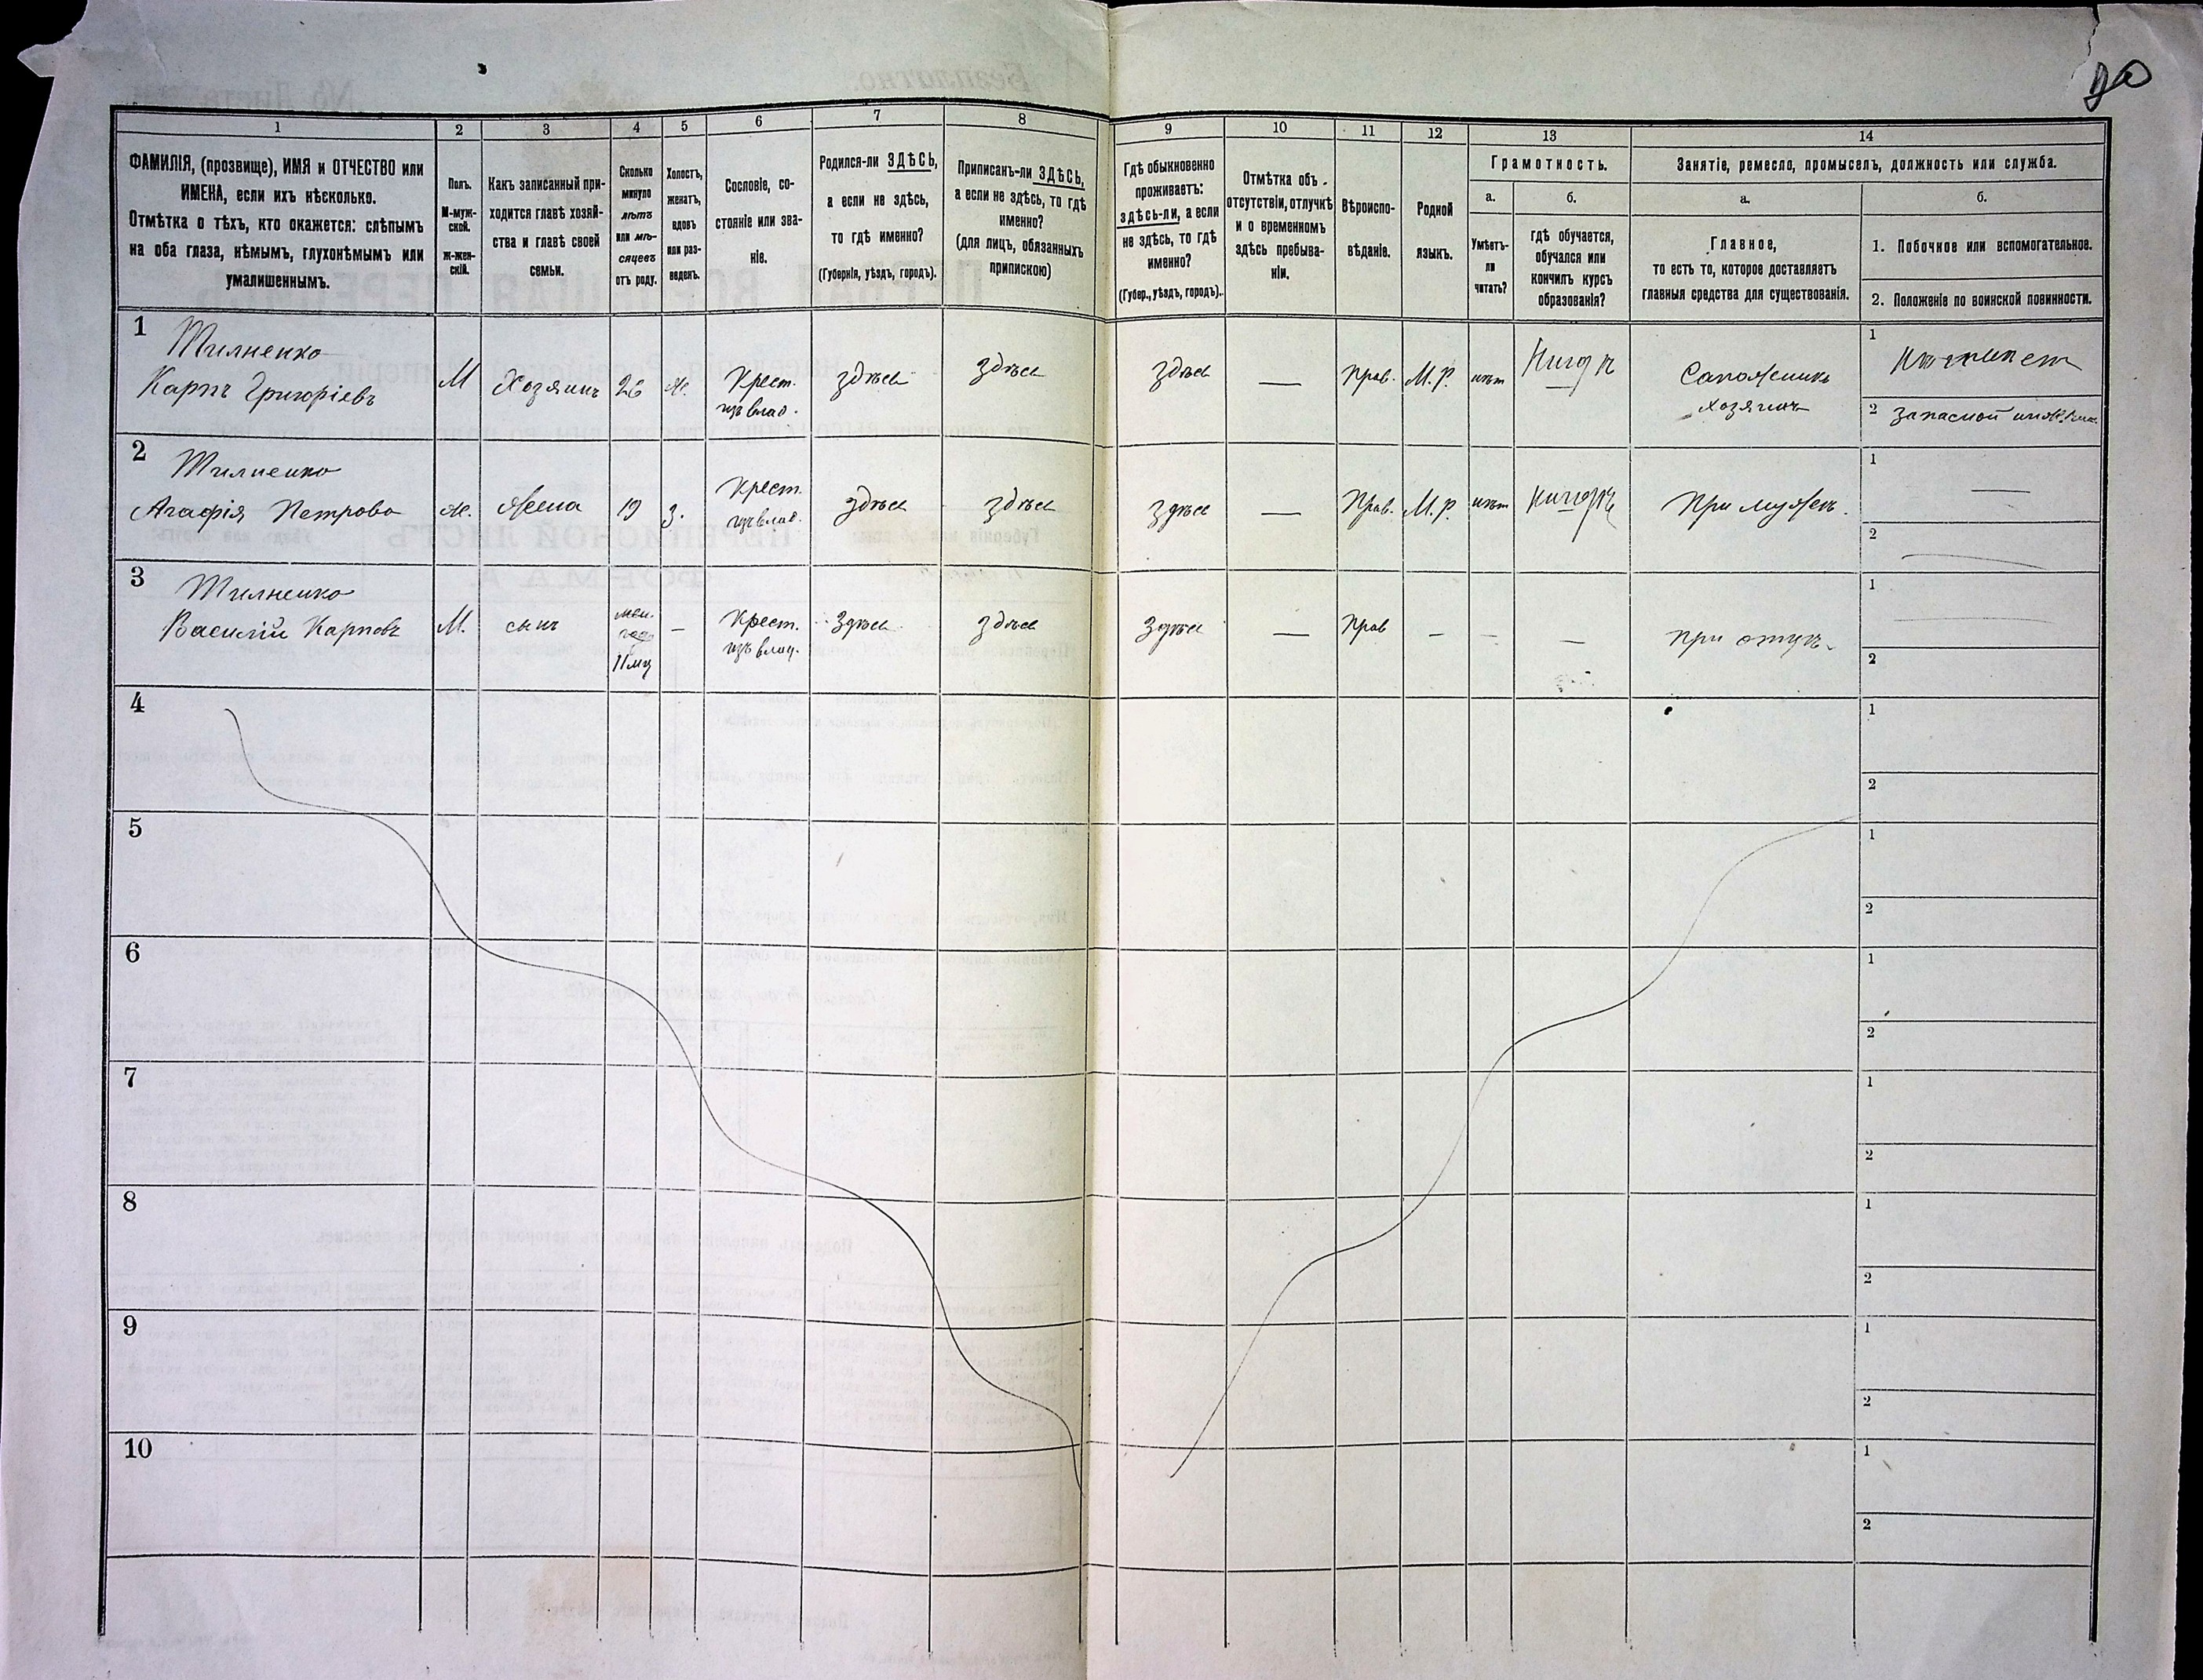 20
1
2
3
4
5
6
7
8
9
10
11
12
13
14
ФАМИЛІЯ, (прозвище), ИМЯ и ОТЧЕСТВО или
ИМЕНА, если ихъ нѣсколько.
Отмѣтка о тѣхъ, кто окажется: слѣпымъ
на оба глаза, нѣмымъ, глухонѣмымъ или
умалишеннымъ.
Полъ.
М-муж-
ской.
Ж-жен-
скій.
Какъ записанный при-
ходится главѣ хозяй-
ства и главѣ своей
семьи.
Сколько
минуло
лѣтъ
или мѣ-
сяцевъ
отъ роду.
Холостъ,
женатъ,
вдовъ
или раз-
веденъ.
Сословіе, со-
стояніе или зва-
ніе.
Родился-ли ЗДѢСЬ,
а если не здѣсь,
то гдѣ именно?
(Губернія, уѣздъ, городъ).
Приписанъ-ли ЗДѢСЬ,
а если не здѣсь, то гдѣ
именно?
(для лицъ, обязанныхъ
припискою)
Гдѣ обыкновенно
проживаетъ:
здѣсь-ли, а если
не здѣсь, то гдѣ
именно?
(Губер., уѣздъ, городъ).
Отмѣтка объ
отсутствіи, отлучкѣ
и о временномъ
здѣсь пребыва-
ніи.
Вѣроиспо-
вѣданіе.
Родной
языкъ.
Грамотность.
а.
Умѣетъ-
ли
читать?
б.
гдѣ обучается,
обучался или
кончилъ курсъ
образованія?
Занятіе, ремесло, промыселъ, должность или служба.
а.
Главное,
то есть то, которое доставляетъ
главныя средства для существованія.
б.
1. Побочное или вспомогательное.
2. Положеніе по воинской повинности.
1
Карпъ Григоріевъ
М
Хозяинъ
26
ж.
Крест.
изъ влад.
здѣсь
здѣсь
здѣсь
—
Прав.
М. Р.
нѣтъ
Сапожникъ
хозяинъ
1
2 запасной
2
Агафія Петрова
ж.
жена
19
з.
Крест.
изъ влад.
здѣсь
здѣсь
здѣсь
—
Прав.
М. Р.
нѣтъ
При мужѣ.
1 —
2
3
Василій Карповъ
М.
сынъ
мен.
года
11 мц
–
Крест.
изъ влад.
здѣсь
здѣсь
здѣсь
—
Прав
–
–
—
при отцѣ
1
2
4
1
2
5
1
2
6
1
2
7
1
2
8
1
2
9
1
2
10
1
2